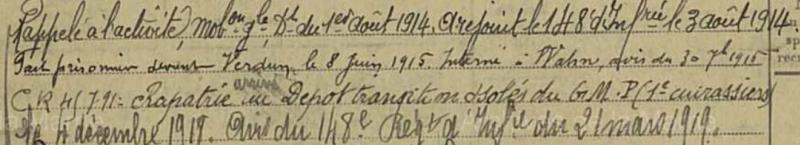 Rappelé à l'activité, Mob^on g^le D^t du 1^er août 1914. A rejoint le 148^e d'Inf^rie le 3 août 1914.
Fait prisonnier devant Verdun le 8 Juin 1915. Interné à Wahn, avis du 30 7^b 1915
C.R. 4/791. Rapatrié arrivé au Dépôt transition isolés du G.M.P (1^e cuirassiers)
le 4 décembre 1918. Avis du 148^e Reg^t d'Inf^ie du 21 mars 1919.